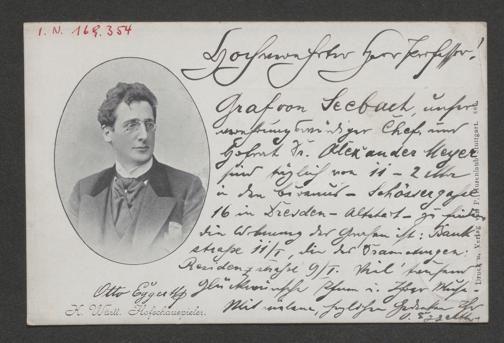 I. N. 169.354
Hochverehrter Herr Professor!
Graf von Seebach, unser
verehrungswürdiger Chef, und
Hofrat Dr. Alexander Meyer
sind täglich von 11 - 2 Uhr
in den Bureaus - Schössergasse
16 in Dresden - Altstadt - zu finden
die Wohnung des Grafen ist:
straße 11/I, die des Dramaturgen:
Residenzstraße 9/I. Viel tausend
Glückwünsche Ihnen u. Ihrer
Mit vielen, herzlichen
Otto Eggerth
K. Württ. Hofschauspieler.
Druck u. Verlag Stuttgart.